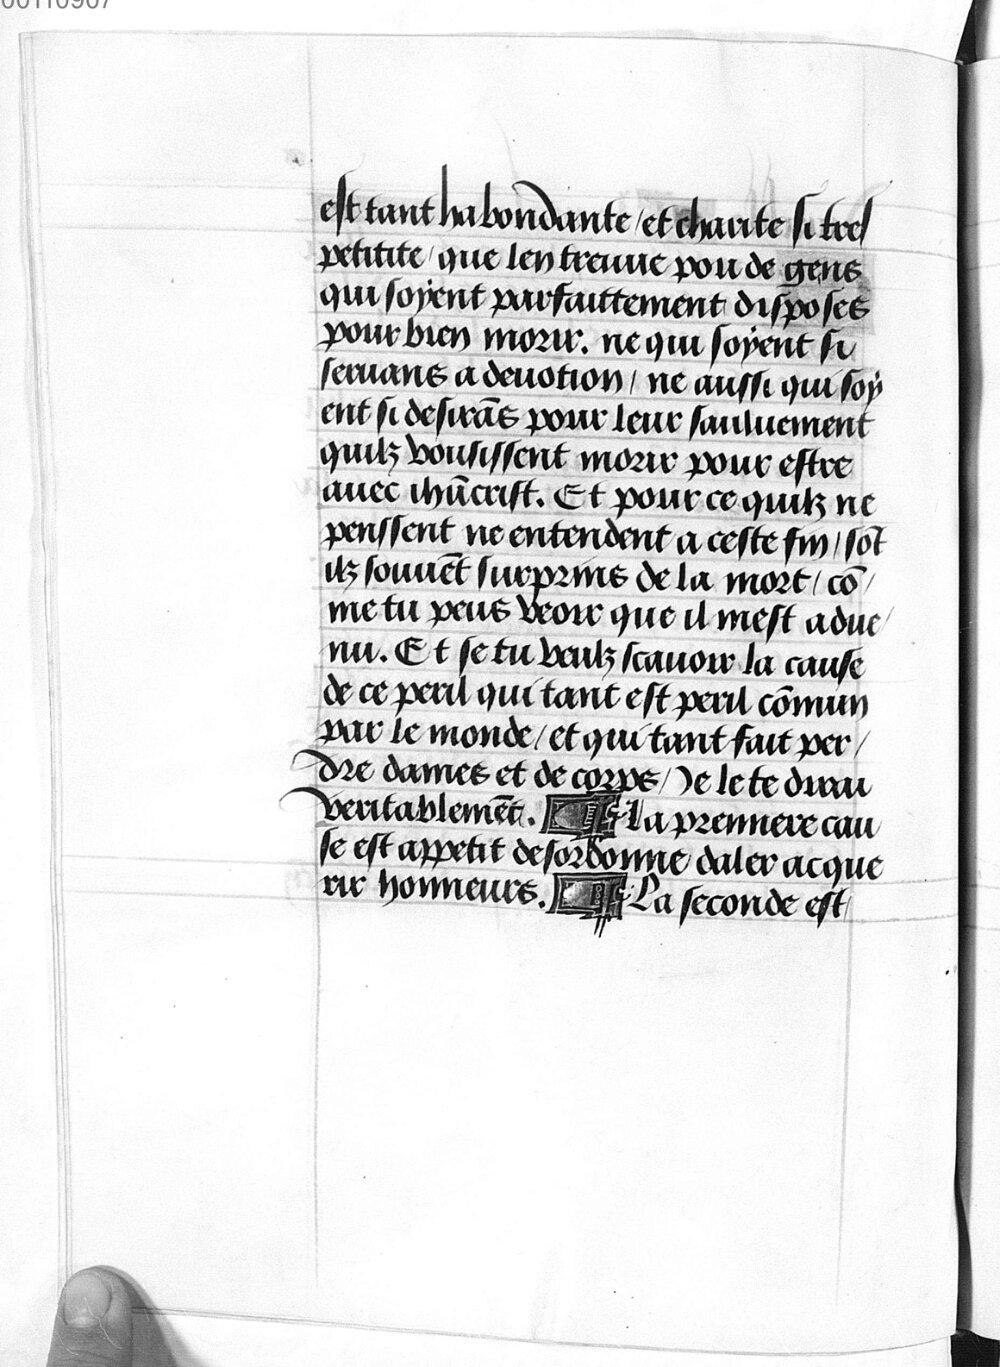 00110907
est tant habondante / et charite si tres
petitite / que len treuue pou de gens
qui soyent parfaittement disposes
pour bien morir. ne qui soyent si
seruans a deuotion / ne aussi qui soy
ent si desirās pour leur sauluement
quilz vousissent morir pour estre
auec ihūcrist. Et pour ce quilz ne
penssent ne entendent a ceste fin / sōt
ilz souuēt surprins de la mort / cō /
me tu peus veoir que il mest adue /
nu. Et se tu veulz scauoir la cause
de ce peril qui tant est peril cōmun
par le monde / et qui tant fait per /
dre dames et de corps / Je le te diray
veritablemēt. La premiere cau
se est appetit desordonne daler acque
rir honneurs. La seconde est